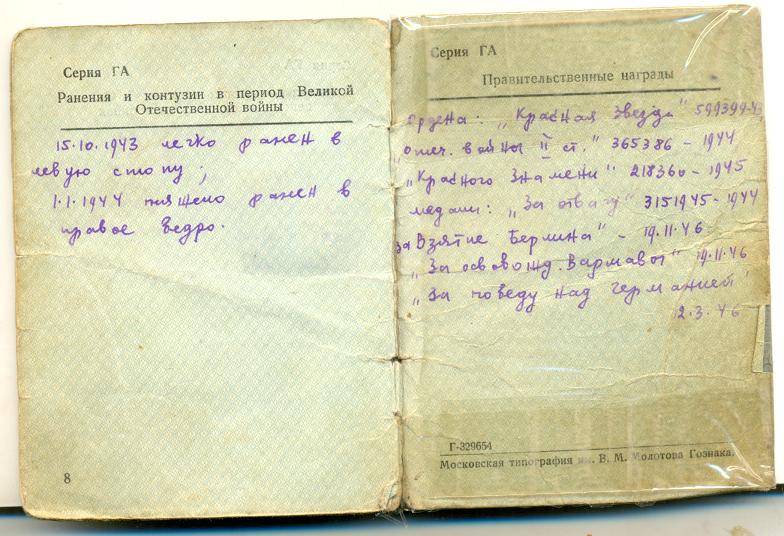 Серия ГА
Ранения и контузии в период Великой
Отечественной войны
15.10.1943 легко ранен в
левую стопу;
1.1.1944 тяжело ранен в
правое бедро.
8
Серия ГА
Правительственные награды
ордена: „Красная звезда" 599399-4
„отеч. войны II ст." 365386 – 1944
„Красного Знамени" 218360 – 1945
медали: „За отвагу" 3151945 – 1944
за Взятие Берлина" – 19.11.46
„За освобожд. Варшавы" 19.11.46
„За победу над германией"
2.3.46
Г-329654
Московская типография им. В. М. Молотова Гознака.